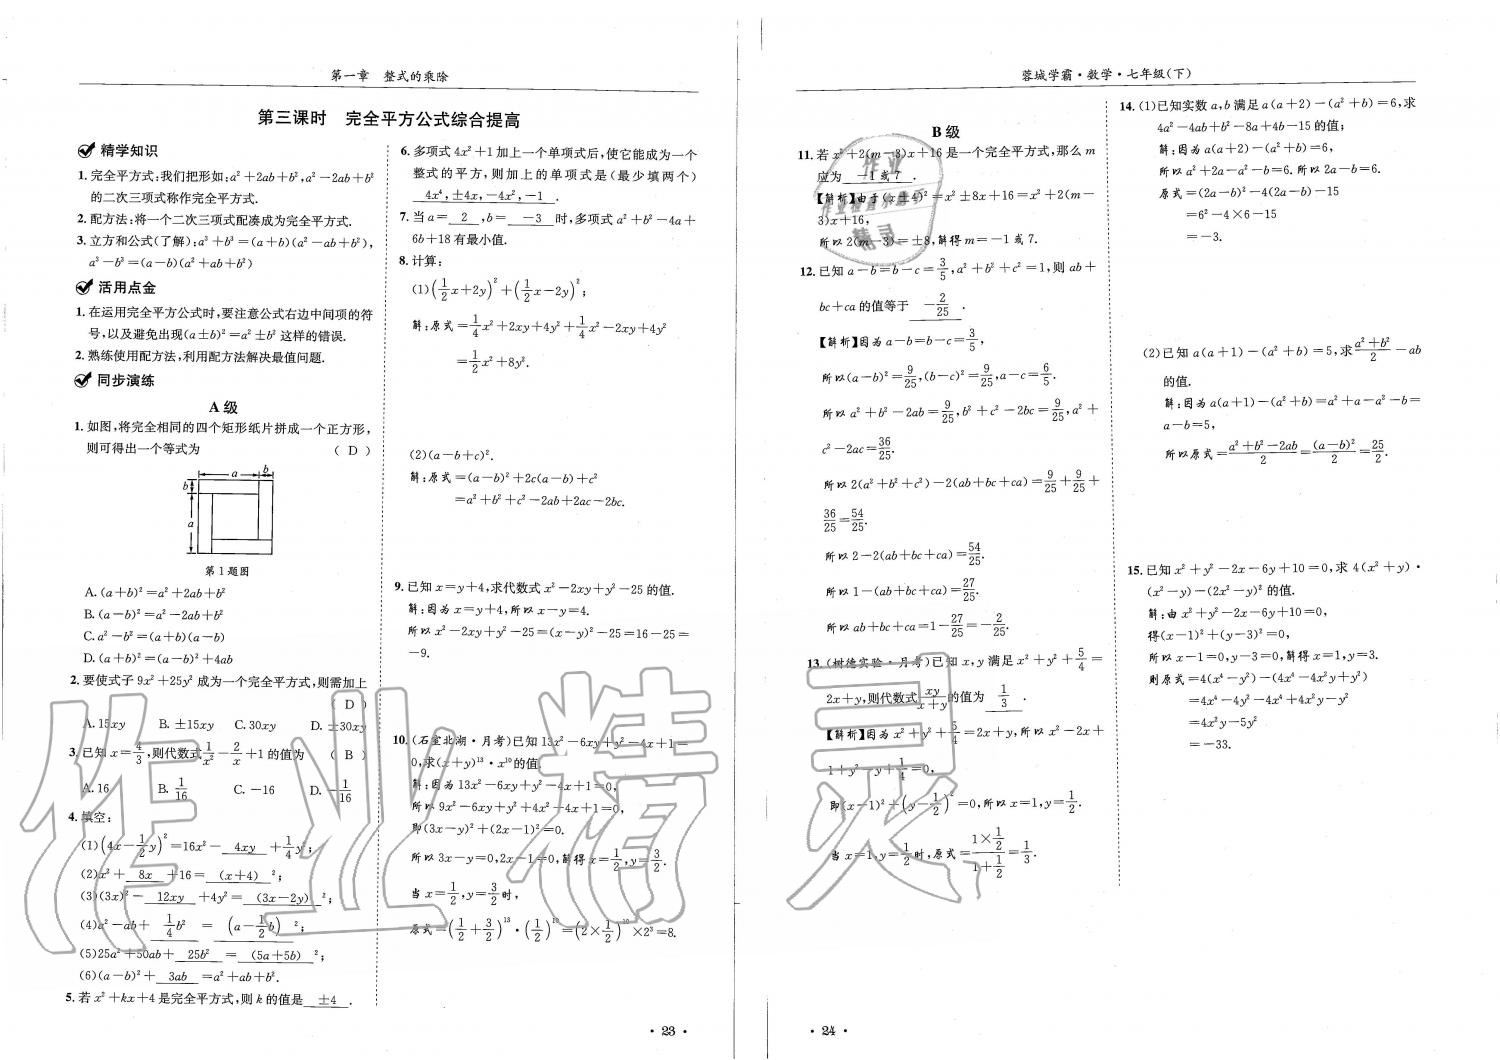 第一章 整式的乘除
第三课时 完全平方公式综合提高
精学知识
1. 完全平方式:我们把形如:a²+2ab+b²,a²-2ab+b²
的二次三项式称作完全平方式.
2. 配方法:将一个二次三项式配凑成为完全平方式.
3. 立方和公式(了解):a³+b³=(a+b)(a²-ab+b²),
a³-b³=(a-b)(a²+ab+b²)
活用点金
1. 在运用完全平方公式时,要注意公式右边中间项的符
号,以及避免出现(a±b)²=a²±b²这样的错误.
2. 熟练使用配方法,利用配方法解决最值问题.
同步演练
A 级
1. 如图,将完全相同的四个矩形纸片拼成一个正方形,
则可得出一个等式为 ( D )
a b
b
a
第1题图
A. (a+b)²=a²+2ab+b²
B. (a-b)²=a²-2ab+b²
C. a²-b²=(a+b)(a-b)
D. (a+b)²=(a-b)²+4ab
2. 要使式子 9x²+25y² 成为一个完全平方式,则需加上
( D )
A. 15xy B. ±15xy C. 30xy D. ±30xy
3. 已知 x=4/3,则代数式 1/x²-2/x+1的值为 ( B )
A. 16 B. 1/16 C. -16 D. -1/16
4. 填空:
(1)(4x-1/2y)²=16x²- 4xy +1/4y²;
(2)x²+ 8x +16= (x+4) ²;
(3)(3x)²- 12xy +4y²= (3x-2y) ²;
(4)a²-ab+ 1/4b² = (a-1/2b) ²;
(5)25a²+50ab+ 25b² = (5a+5b) ²;
(6)(a-b)²+ 3ab =a²+ab+b².
5. 若 x²+kx+4 是完全平方式,则 k 的值是 ±4 .
6. 多项式 4x²+1加上一个单项式后,使它能成为一个
整式的平方,则加上的单项式是(最少填两个)
4x⁴,±4x,-4x²,-1 .
7. 当 a= 2 ,b= -3 时,多项式 a²+b²-4a+
6b+18有最小值.
8. 计算:
(1)(1/2x+2y)²+(1/2x-2y)²;
解:原式=1/4x²+2xy+4y²+1/4x²-2xy+4y²
=1/2x²+8y².
(2)(a-b+c)².
解:原式=(a-b)²+2c(a-b)+c²
=a²+b²+c²-2ab+2ac-2bc.
9. 已知 x=y+4,求代数式 x²-2xy+y²-25 的值.
解:因为 x=y+4,所以 x-y=4.
所以 x²-2xy+y²-25=(x-y)²-25=16-25=
-9.
10. (石室北湖·月考)已知 13x²-6xy+y²-4x+1=
0,求(x+y)¹³·x¹⁰的值.
解:因为 13x²-6xy+y²-4x+1=0,
所以 9x²-6xy+y²+4x²-4x+1=0,
即(3x-y)²+(2x-1)²=0.
所以 3x-y=0,2x-1=0,解得 x=1/2,y=3/2.
当 x=1/2,y=3/2时,
原式=(1/2+3/2)¹³·(1/2)¹⁰=(2×1/2)¹⁰×2³=8.
· 23 ·
蓉城学霸·数学·七年级(下)
B 级
11. 若 x²+2(m-3)x+16是一个完全平方式,那么 m
应为 -1或7 .
【解析】由于(x±4)²=x²±8x+16=x²+2(m-
3)x+16,
所以 2(m-3)=±8,解得 m=-1或7.
12. 已知 a-b=b-c=3/5,a²+b²+c²=1,则 ab+
bc+ca 的值等于 -2/25 .
【解析】因为 a-b=b-c=3/5,
所以(a-b)²=9/25,(b-c)²=9/25,a-c=6/5.
所以 a²+b²-2ab=9/25,b²+c²-2bc=9/25,a²+
c²-2ac=36/25.
所以 2(a²+b²+c²)-2(ab+bc+ca)=9/25+9/25+
36/25=54/25.
所以 2-2(ab+bc+ca)=54/25.
所以 1-(ab+bc+ca)=27/25
所以 ab+bc+ca=1-27/25=-2/25.
13. (树德实验·月考)已知 x,y 满足 x²+y²+5/4=
2x+y,则代数式 xy/(x+y) 的值为 1/3 .
【解析】因为 x²+y²+5/4=2x+y,所以 x²-2x+
1+y²-y+1/4=0,
即(x-1)²+(y-1/2)²=0,所以 x=1,y=1/2.
当 x=1,y=1/2时,原式=(1×1/2)/(1+1/2)=1/3.
14. (1)已知实数 a,b 满足 a(a+2)-(a²+b)=6,求
4a²-4ab+b²-8a+4b-15 的值;
解:因为 a(a+2)-(a²+b)=6,
所以 a²+2a-a²-b=6. 所以 2a-b=6.
原式=(2a-b)²-4(2a-b)-15
=6²-4×6-15
=-3.
(2)已知 a(a+1)-(a²+b)=5,求(a²+b²)/2-ab
的值.
解:因为 a(a+1)-(a²+b)=a²+a-a²-b=
a-b=5,
所以原式=(a²+b²-2ab)/2=(a-b)²/2=25/2.
15. 已知 x²+y²-2x-6y+10=0,求 4(x²+y)·
(x²-y)-(2x²-y)² 的值.
解:由 x²+y²-2x-6y+10=0,
得(x-1)²+(y-3)²=0,
所以 x-1=0,y-3=0,解得 x=1,y=3.
则原式=4(x⁴-y²)-(4x⁴-4x²y+y²)
=4x⁴-4y²-4x⁴+4x²y-y²
=4x²y-5y²
=-33.
· 24 ·
作业精灵